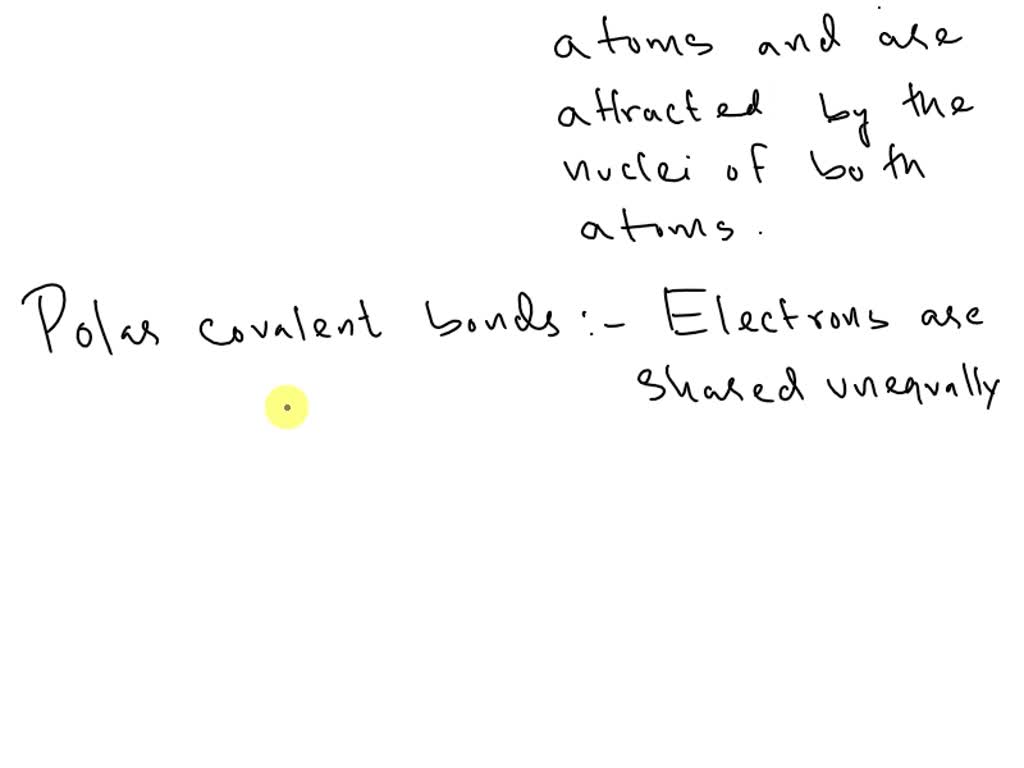 atoms and are
attracted by the
nuclei of both
atoms.
Polar covalent bonds :- Electrons are
shared unequally